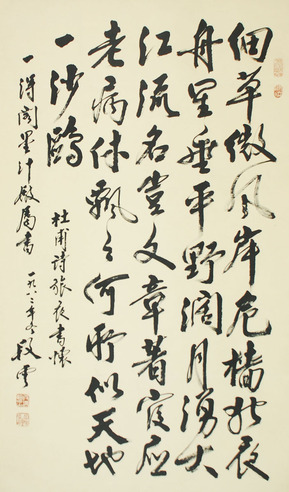 細草微風岸危檣独夜
舟星垂平野阔月湧大
江流名豈文章著官應
老病休飄々何所似天地
一沙鷗
杜甫詩旅夜書懷
一得阁墨汁厰属書 一九八二年冬 段雲